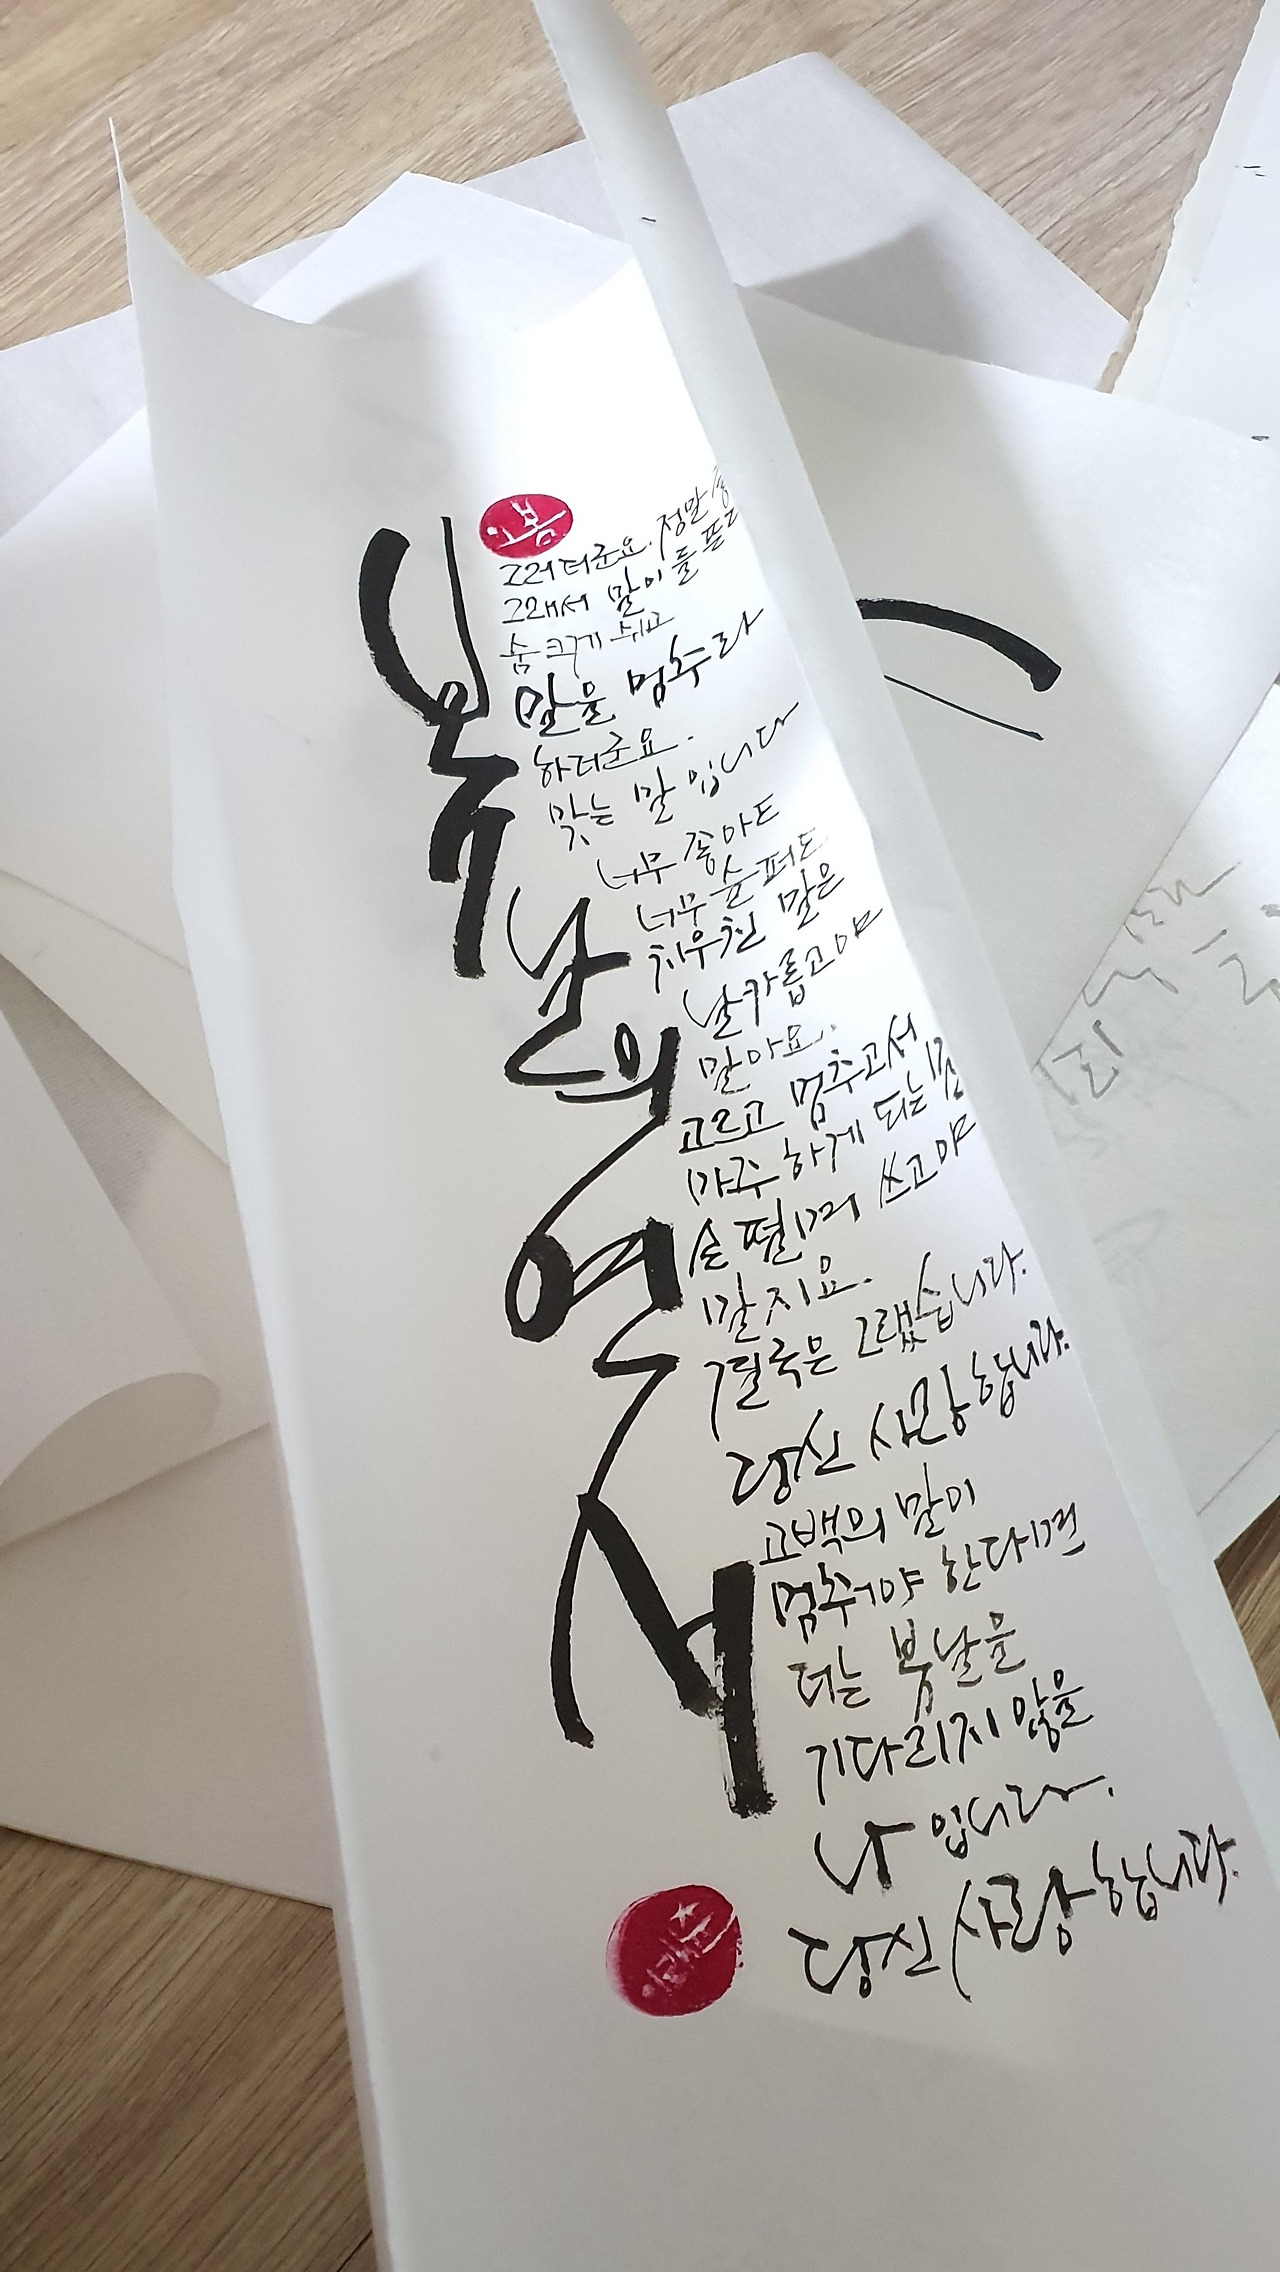 봄날의 연서
봄
그러더군요. 정말
그래서 말이 들뜰
숨 크게 쉬고
말을 멈추라
하더군요.
맞는 말 입니다
너무 좋아도
너무 슬퍼도
치우친 말은
날카롭고야
말아요.
고르고 멈추고서
마주하게 되는
손 떨며 쓰고야
말지요.
결국은 그랬습니다.
당신 사랑합니다.
고백의 말이
멈춰야 한다면
더는 봄날을
기다리지 않을
나 입니다.
당신 사랑합니다.